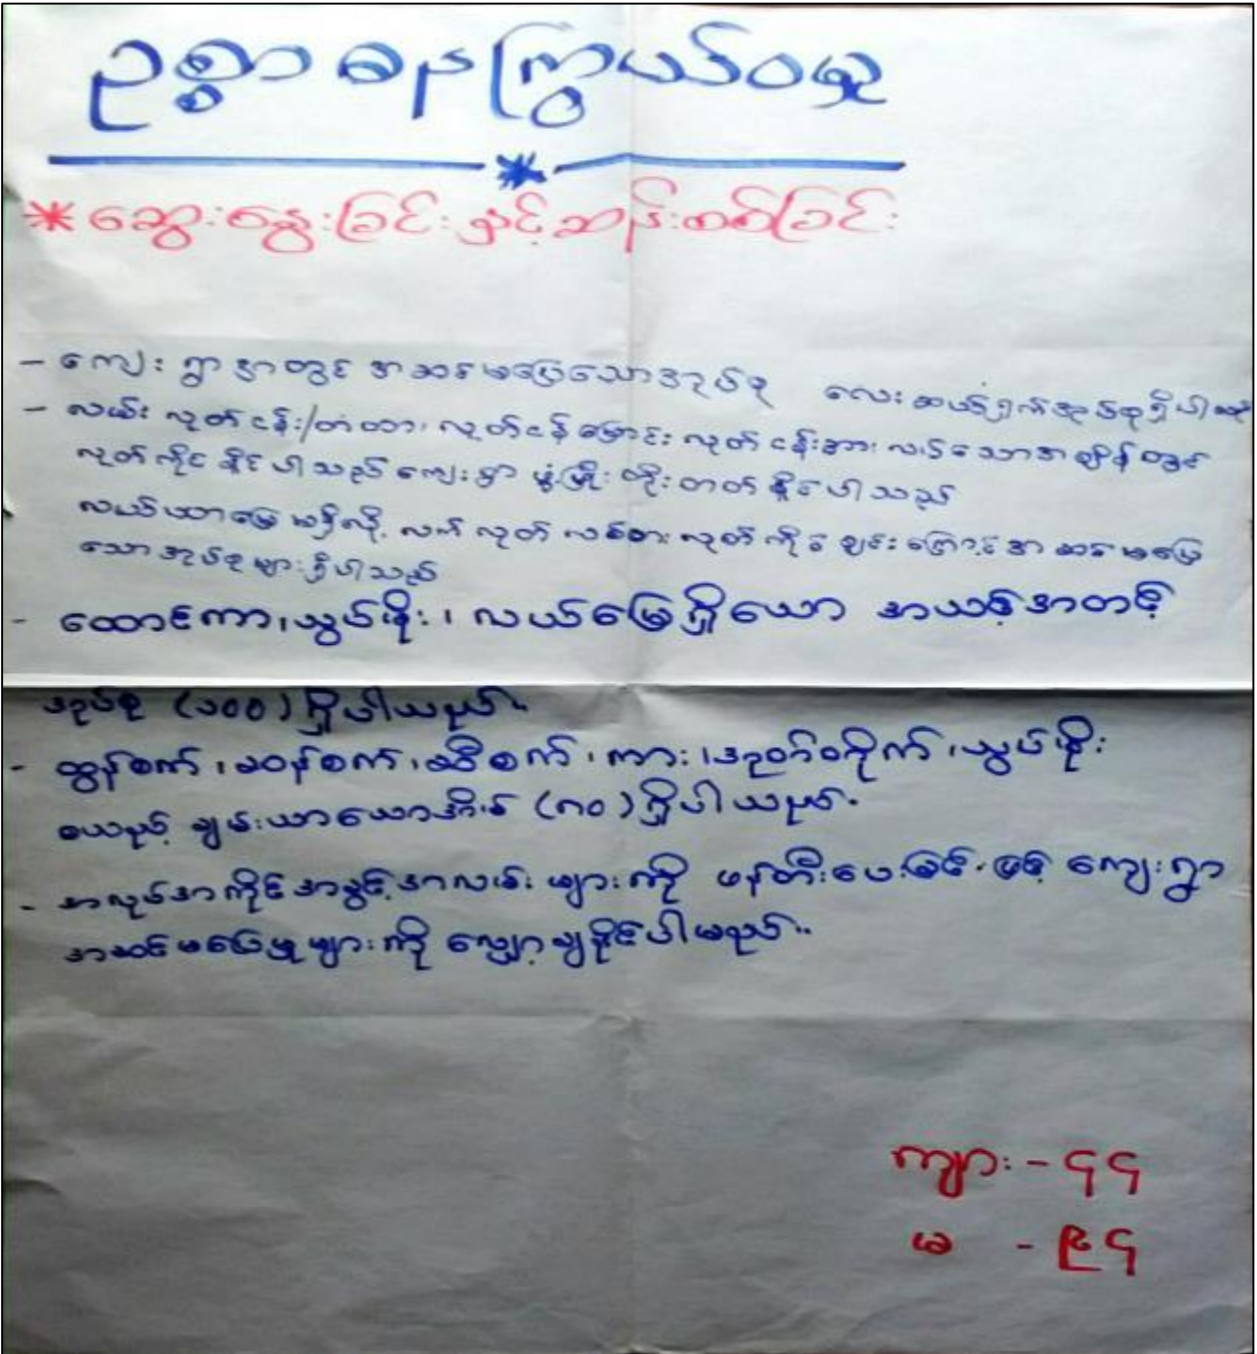 ဥစ္စာဓနကြွယ်ဝမှု
* ဆွေးနွေးခြင်းနှင့်ဆန်းစစ်ခြင်း
- ကျေးရွာအတွင် အဆင်မပြေသောအုပ်စု လေးဆယ့်ရှက်အုပ်စုရှိပါသည်
- လမ်းလုတ်ငန်း/တံတား လုတ်ငန်းမြောင်း လုတ်ငန်းအား လပ်သောအချိန်တွင်
လုတ်ကိုင်နိုင်ပါသည် ကျေးရွာ ဖွံ့ဖြိုးတိုးတတ်နိုင်ပါသည်
လယ်ယာမြေမရှိလို့ လက်လုတ်လစ်စား လုတ်ကိုင်ချင်းကြောင့် အဆင်မပြေ
သောအုပ်စုများရှိပါသည်
- ထောင်ကာ၊သွပ်မိုး၊ လယ်မြေရှိယော အယင့်အတင့်
အုပ်စု (၁၀၀) ရှိပါယည်။
- ထွန်စက်၊ဆန်စက်၊ဆီစက်၊ကား၊အုတ်တိုက်၊သွပ်မိုး
စယည့် ချမ်းယာယောအိမ် (၈၀) ရှိပါယည်။
- အလုပ်အကိုင်အခွင့်အလမ်းများကို ဖန်တီးပေးခြင်းဖြင့် ကျေးရွာ
အဆင်မပြေမှုများကို လျှော့ချနိုင်ပါမည်။
ကျား - ၄၄
မ - ၉၄